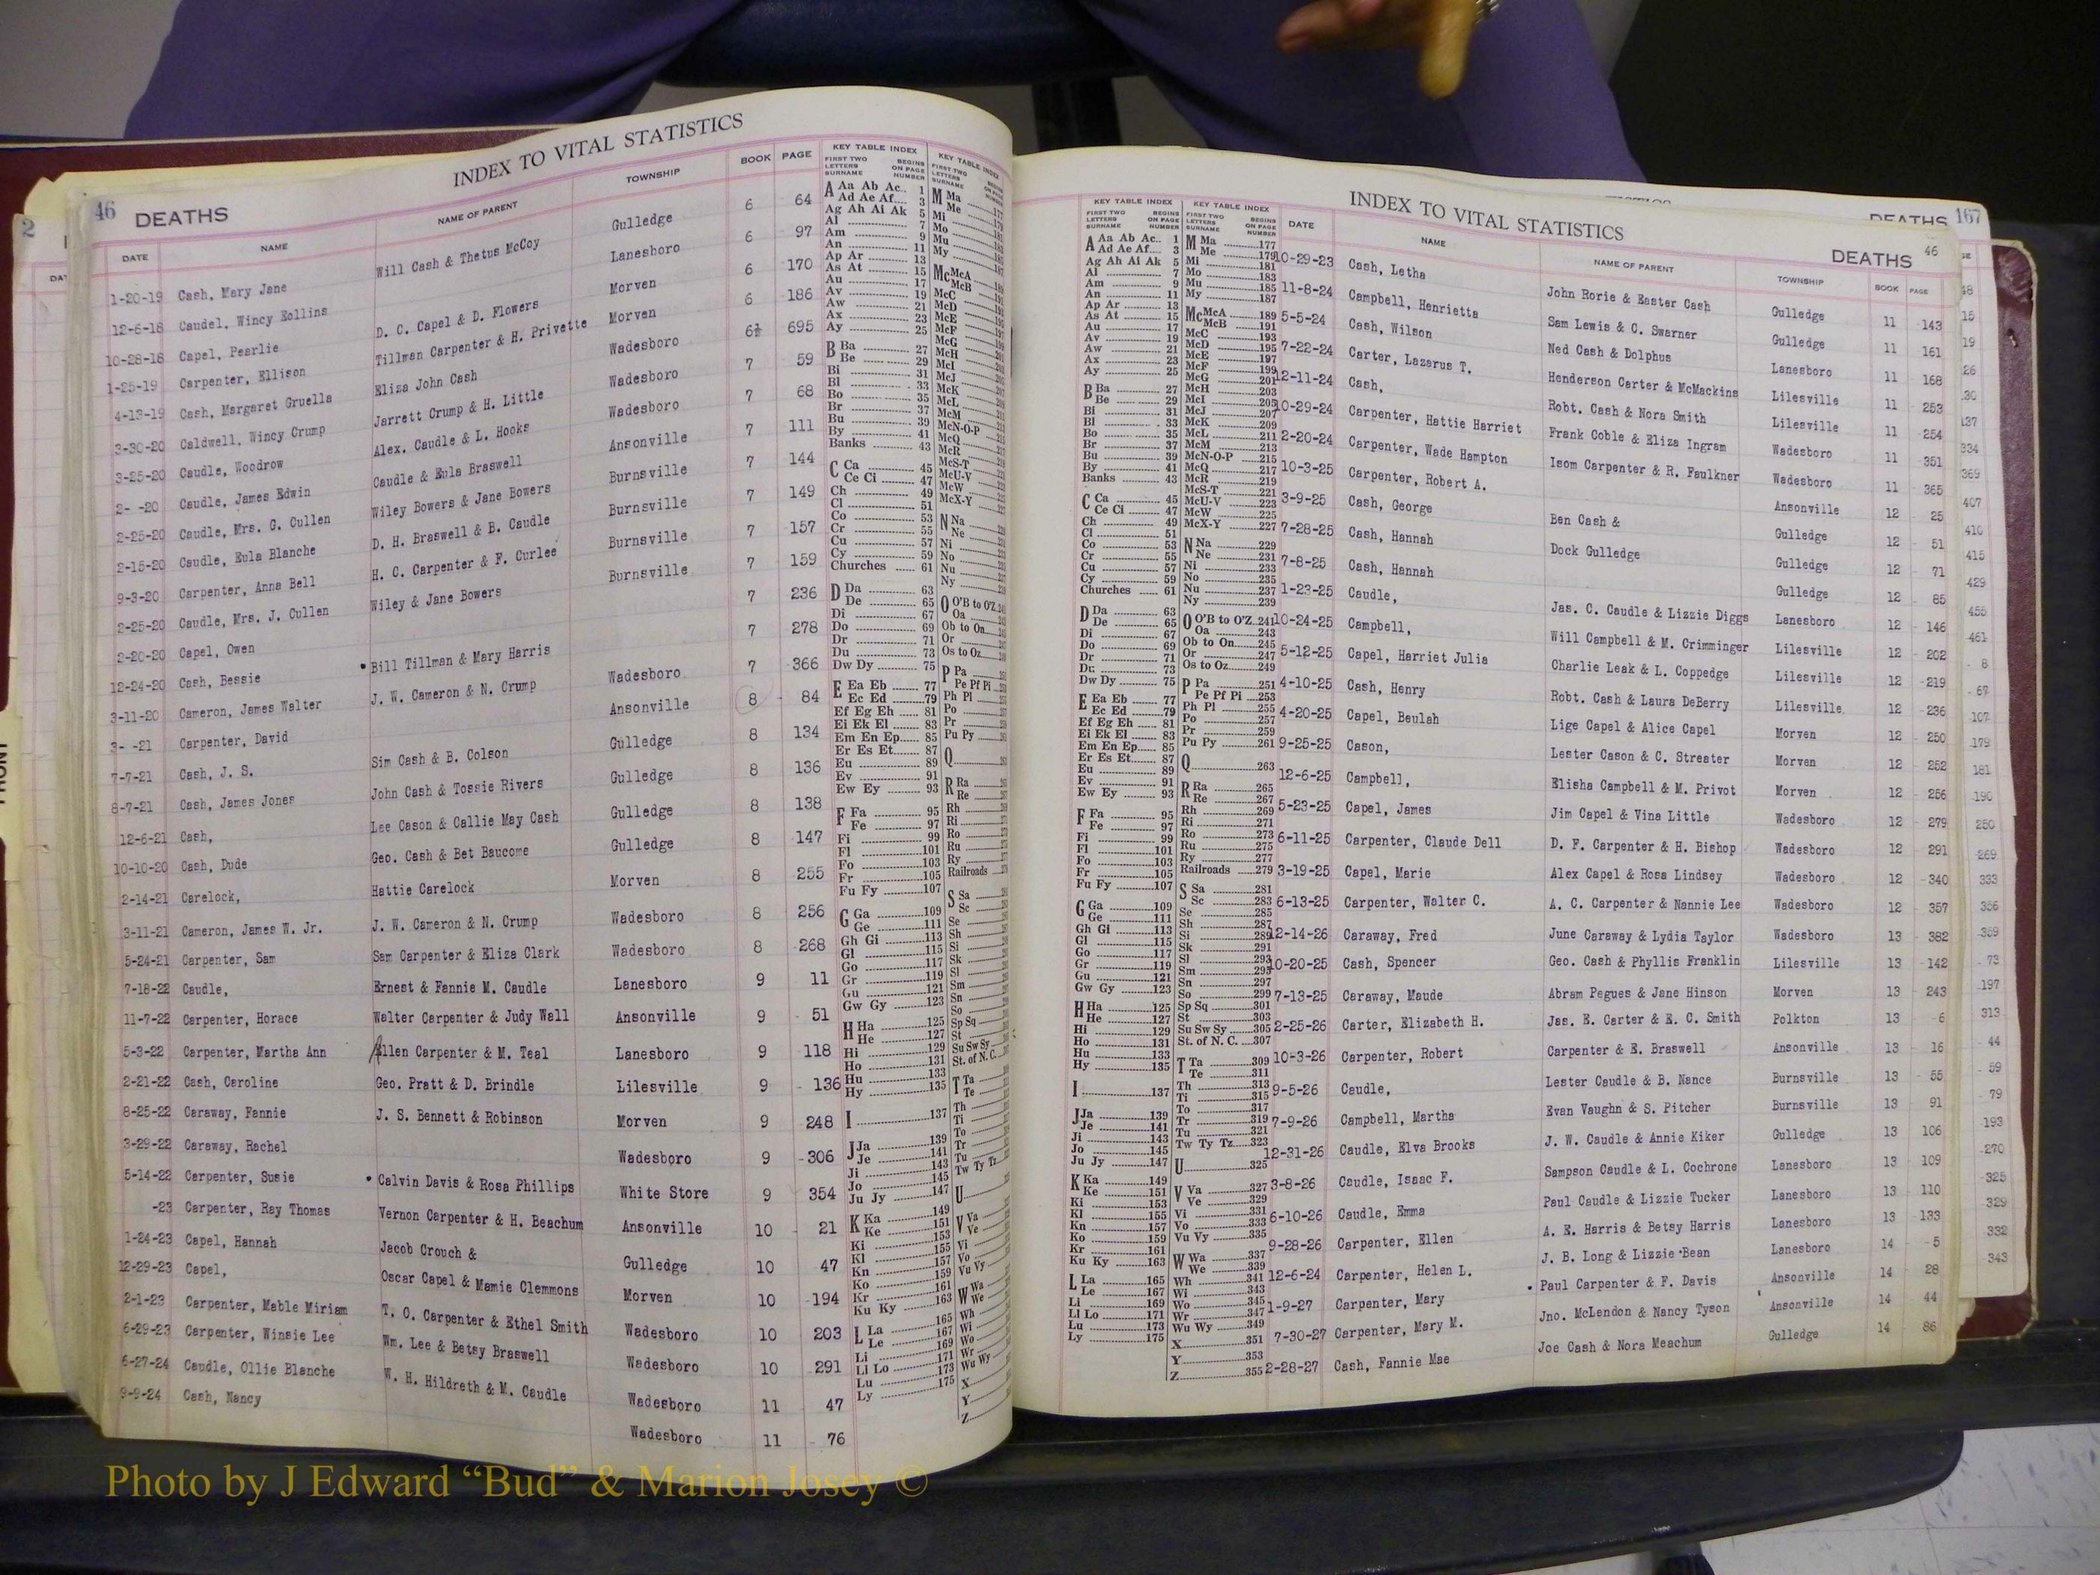 INDEX TO VITAL STATISTICS
46 DEATHS
DATE NAME NAME OF PARENT TOWNSHIP BOOK PAGE
1-20-19 Cash, Mary Jane Will Cash & Thetus McCoy Gulledge 6 64
12-6-18 Caudel, Wincy Eollins Lanesboro 6 97
10-28-18 Capel, Pearlie D. C. Capel & D. Flowers Morven 6 170
1-25-19 Carpenter, Ellison Tillman Carpenter & H. Privette Morven 6 186
4-13-19 Cash, Margaret Gruella Eliza John Cash Wadesboro 6½ 695
3-30-20 Caldwell, Wincy Crump Jarrett Crump & H. Little Wadesboro 7 59
3-25-20 Caudle, Woodrow Alex. Caudle & L. Hooks Wadesboro 7 68
2- -20 Caudle, James Edwin Caudle & Eula Braswell Ansonville 7 111
2-25-20 Caudle, Mrs. G. Cullen Wiley Bowers & Jane Bowers Burnsville 7 144
2-15-20 Caudle, Eula Blanche D. H. Braswell & B. Caudle Burnsville 7 149
9-3-20 Carpenter, Anna Bell H. C. Carpenter & F. Curlee Burnsville 7 157
2-25-20 Caudle, Mrs. J. Cullen Wiley & Jane Bowers Burnsville 7 159
2-20-20 Capel, Owen 7 236
12-24-20 Cash, Bessie Bill Tillman & Mary Harris 7 278
3-11-20 Cameron, James Walter J. W. Cameron & N. Crump Wadesboro 7 366
3- -21 Carpenter, David Ansonville 8 84
7-7-21 Cash, J. S. Sim Cash & B. Colson Gulledge 8 134
8-7-21 Cash, James Jones John Cash & Tossie Rivers Gulledge 8 136
12-6-21 Cash, Lee Cason & Callie May Cash Gulledge 8 138
10-10-20 Cash, Dude Geo. Cash & Bet Baucome Gulledge 8 147
2-14-21 Carelock, Hattie Carelock Morven 8 255
3-11-21 Cameron, James W. Jr. J. W. Cameron & N. Crump Wadesboro 8 256
5-24-21 Carpenter, Sam Sam Carpenter & Eliza Clark Wadesboro 8 268
7-18-22 Caudle, Ernest & Fannie M. Caudle Lanesboro 9 11
11-7-22 Carpenter, Horace Walter Carpenter & Judy Wall Ansonville 9 51
5-3-22 Carpenter, Martha Ann Allen Carpenter & M. Teal Lanesboro 9 118
2-21-22 Cash, Caroline Geo. Pratt & D. Brindle Lilesville 9 136
8-25-22 Caraway, Fannie J. S. Bennett & Robinson Morven 9 248
3-29-22 Caraway, Rachel Wadesboro 9 306
5-14-22 Carpenter, Susie Calvin Davis & Rosa Phillips White Store 9 354
-23 Carpenter, Ray Thomas Vernon Carpenter & H. Beachum Ansonville 10 21
1-24-23 Capel, Hannah Jacob Crouch & Gulledge 10 47
12-29-23 Capel, Oscar Capel & Mamie Clemmons Morven 10 194
2-1-23 Carpenter, Mable Miriam T. C. Carpenter & Ethel Smith Wadesboro 10 203
6-29-23 Carpenter, Winsie Lee Wm. Lee & Betsy Braswell Wadesboro 10 291
6-27-24 Caudle, Ollie Blanche W. H. Hildreth & M. Caudle Wadesboro 11 47
9-9-24 Cash, Nancy Wadesboro 11 76
KEY TABLE INDEX KEY TABLE INDEX
FIRST TWO LETTERS SURNAME BEGINS ON PAGE NUMBER
A Aa Ab Ac.. 1
Ad Ae Af.... 3
Ag Ah Ai Ak 5
Al 7
Am 9
An 11
Ap Ar 13
As At 15
Au 17
Av 19
Aw 21
Ax 23
Ay 25
B Ba 27
Be 29
Bi 31
Bl 33
Bo 35
Br 37
Bu 39
By 41
Banks 43
C Ca 45
Ce Ci 47
Ch 49
Cl 51
Co 53
Cr 55
Cu 57
Cy 59
Churches 61
D Da 63
De 65
Di 67
Do 69
Dr 71
Du 73
Dw Dy 75
E Ea Eb 77
Ec Ed 79
Ef Eg Eh 81
Ei Ek El 83
Em En Ep 85
Er Es Et 87
Eu 89
Ev 91
Ew Ey 93
F Fa 95
Fe 97
Fi 99
Fl 101
Fo 103
Fr 105
Fu Fy 107
G Ga 109
Ge 111
Gh Gi 113
Gl 115
Go 117
Gr 119
Gu 121
Gw Gy 123
H Ha 125
He 127
Hi 129
Ho 131
Hu 133
Hy 135
I 137
J Ja 139
Je 141
Ji 143
Jo 145
Ju Jy 147
K Ka 149
Ke 151
Ki 153
Kl 155
Kn 157
Ko 159
Kr 161
Ku Ky 163
L La 165
Le 167
Li 169
Ll Lo 171
Lu 173
Ly 175
INDEX TO VITAL STATISTICS
DEATHS 46
KEY TABLE INDEX KEY TABLE INDEX
FIRST TWO LETTERS SURNAME BEGINS ON PAGE NUMBER
M Ma 177
Me 179
Mi 181
Mo 183
Mu 185
My 187
Mc McA 189
McB 191
McC 193
McD 195
McE 197
McF 199
McG 201
McH 203
McI 205
McJ 207
McK 209
McL 211
McM 213
McN-O-P 215
McQ 217
McR 219
McS-T 221
McU-V 223
McW 225
McX-Y 227
N Na 229
Ne 231
Ni 233
No 235
Nu 237
Ny 239
O O'B to O'Z 241
Oa 243
Ob to On 245
Or 247
Os to Oz 249
P Pa 251
Pe Pf Pi 253
Ph Pl 255
Po 257
Pr 259
Pu Py 261
Q 263
R Ra 265
Re 267
Rh 269
Ri 271
Ro 273
Ru 275
Ry 277
Railroads 279
S Sa 281
Sc 283
Se 285
Sh 287
Si 289
Sk 291
Sl 293
Sm 295
Sn 297
So 299
Sp Sq 301
St 303
Su Sw Sy 305
St. of N. C. 307
T Ta 309
Te 311
Th 313
Ti 315
To 317
Tr 319
Tu 321
Tw Ty Tz 323
U 325
V Va 327
Ve 329
Vi 331
Vo 333
Vu Vy 335
W Wa 337
We 339
Wh 341
Wi 343
Wo 345
Wr 347
Wu Wy 349
X 351
Y 353
Z 355
DATE NAME NAME OF PARENT TOWNSHIP BOOK PAGE
10-29-23 Cash, Letha John Rorie & Easter Cash Gulledge 11 143
11-8-24 Campbell, Henrietta Sam Lewis & C. Swarner Gulledge 11 161
5-5-24 Cash, Wilson Ned Cash & Dolphus Lanesboro 11 168
7-22-24 Carter, Lazerus T. Henderson Carter & McMackins Lilesville 11 253
12-11-24 Cash, Robt. Cash & Nora Smith Lilesville 11 254
10-29-24 Carpenter, Hattie Harriet Frank Coble & Eliza Ingram Wadesboro 11 351
2-20-24 Carpenter, Wade Hampton Isom Carpenter & R. Faulkner Wadesboro 11 365
10-3-25 Carpenter, Robert A. Ansonville 12 25
3-9-25 Cash, George Ben Cash & Gulledge 12 51
7-28-25 Cash, Hannah Dock Gulledge Gulledge 12 71
7-8-25 Cash, Hannah Gulledge 12 85
1-23-25 Caudle, Jas. C. Caudle & Lizzie Diggs Lanesboro 12 146
10-24-25 Campbell, Will Campbell & M. Crimminger Lilesville 12 202
5-12-25 Capel, Harriet Julia Charlie Leak & L. Coppedge Lilesville 12 219
4-10-25 Cash, Henry Robt. Cash & Laura DeBerry Lilesville 12 236
4-20-25 Capel, Beulah Lige Capel & Alice Capel Morven 12 250
9-25-25 Cason, Lester Cason & C. Streater Morven 12 252
12-6-25 Campbell, Elisha Campbell & M. Privot Morven 12 256
5-23-25 Capel, James Jim Capel & Vina Little Wadesboro 12 279
6-11-25 Carpenter, Claude Dell D. F. Carpenter & H. Bishop Wadesboro 12 291
3-19-25 Capel, Marie Alex Capel & Rosa Lindsey Wadesboro 12 340
6-13-25 Carpenter, Walter C. A. C. Carpenter & Nannie Lee Wadesboro 12 357
12-14-26 Caraway, Fred June Caraway & Lydia Taylor Wadesboro 13 382
10-20-25 Cash, Spencer Geo. Cash & Phyllis Franklin Lilesville 13 142
7-13-25 Caraway, Maude Abram Pegues & Jane Hinson Morven 13 243
2-25-26 Carter, Elizabeth H. Jas. E. Carter & E. C. Smith Polkton 13 6
10-3-26 Carpenter, Robert Carpenter & E. Braswell Ansonville 13 16
9-5-26 Caudle, Lester Caudle & B. Nance Burnsville 13 55
7-9-26 Campbell, Martha Evan Vaughn & S. Pitcher Burnsville 13 91
12-31-26 Caudle, Elva Brooks J. W. Caudle & Annie Kiker Gulledge 13 106
3-8-26 Caudle, Isaac F. Sampson Caudle & L. Cochrone Lanesboro 13 109
6-10-26 Caudle, Emma Paul Caudle & Lizzie Tucker Lanesboro 13 110
9-28-26 Carpenter, Ellen A. E. Harris & Betsy Harris Lanesboro 13 133
12-6-24 Carpenter, Helen L. J. B. Long & Lizzie Bean Lanesboro 14 5
1-9-27 Carpenter, Mary Paul Carpenter & F. Davis Ansonville 14 28
7-30-27 Carpenter, Mary M. Jno. McLendon & Nancy Tyson Ansonville 14 44
2-28-27 Cash, Fannie Mae Joe Cash & Nora Meachum Gulledge 14 86
DEATHS 167
Photo by J Edward “Bud” & Marion Josey ©